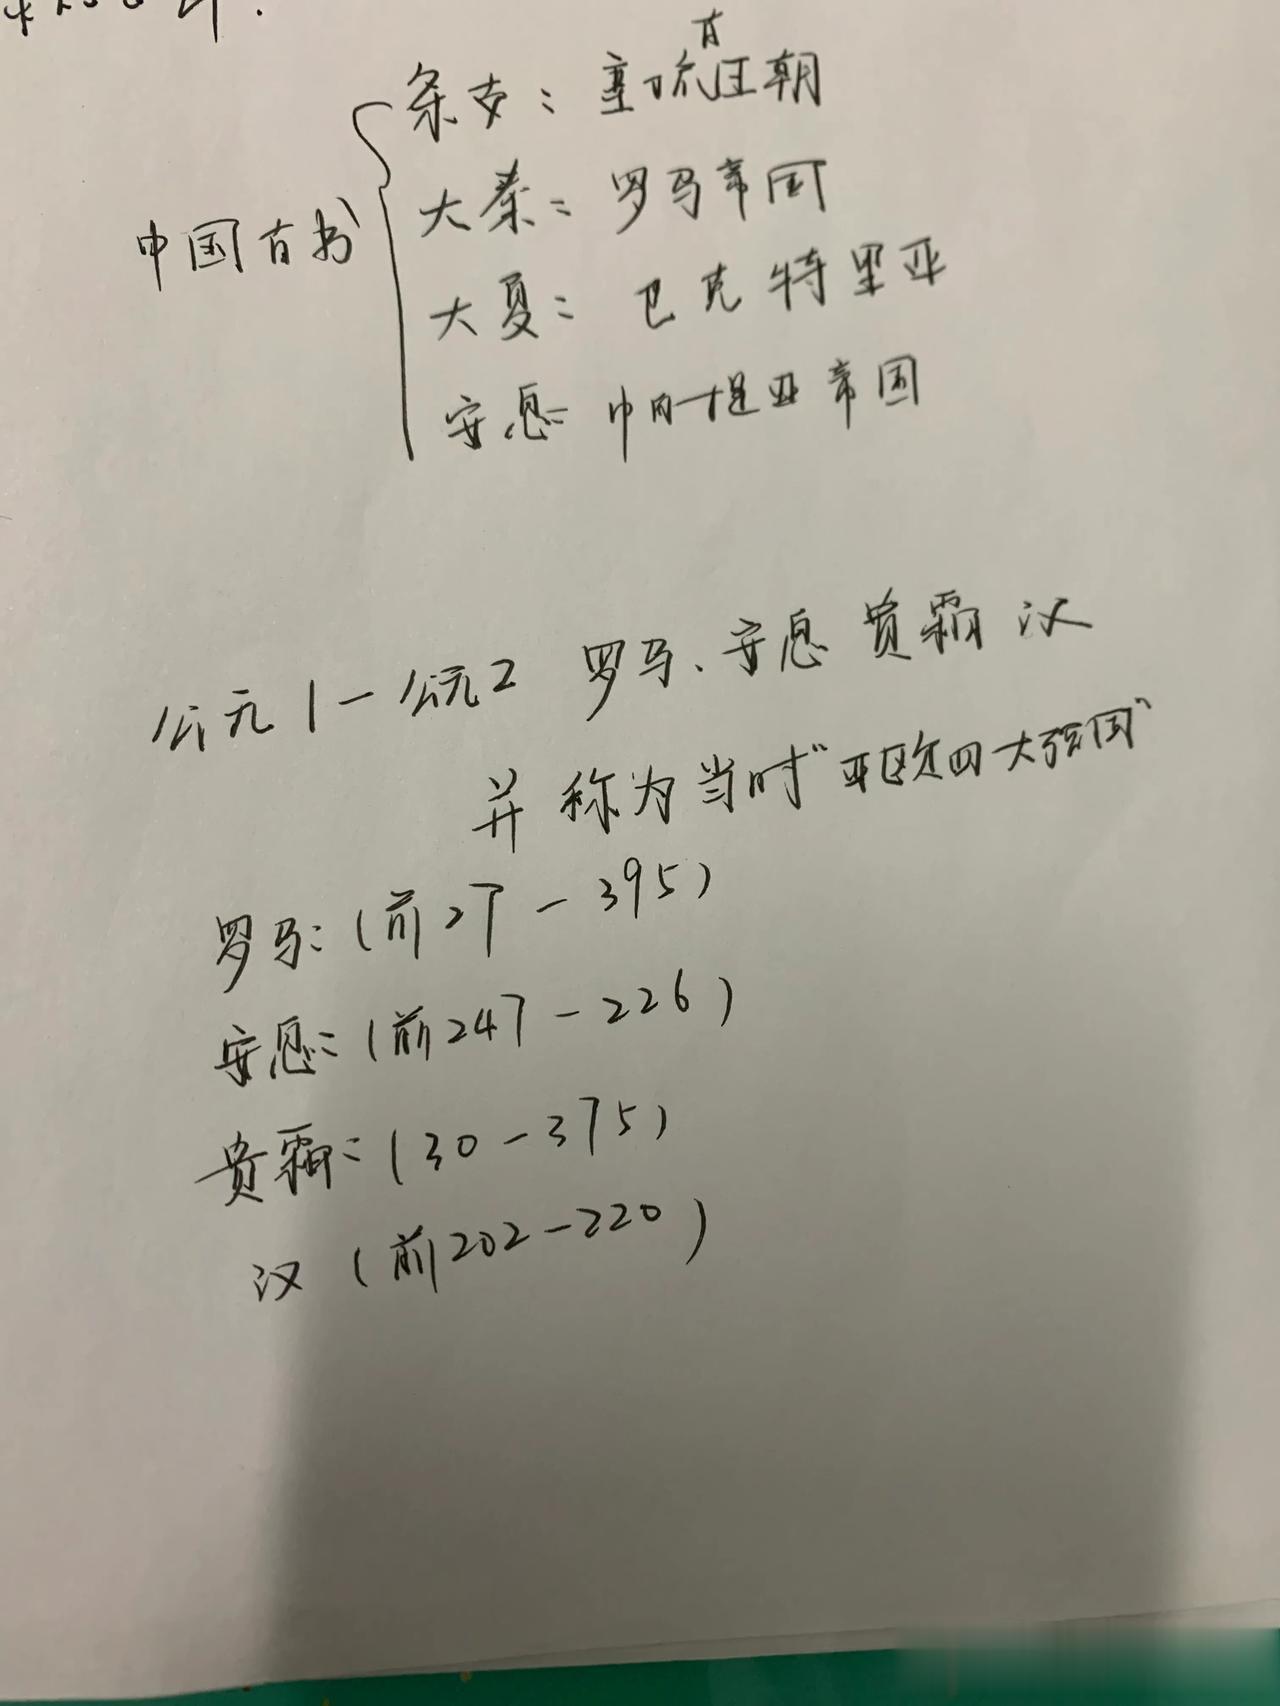 条支：塞琉古王朝
大秦：罗马帝国
中国古书
大夏：巴克特里亚
安息：帕提亚帝国
公元1—公元2 罗马、安息 贵霜 汉
并称为当时“亚欧四大强国”
罗马：（前27－395）
安息：（前247－226）
贵霜：（30－375）
汉（前202－220）